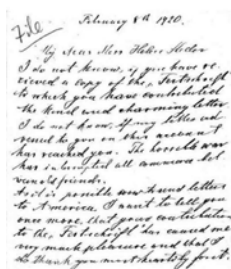 File
February 8th 1920.
My dear Miss Helen
I do not know, if you have re-
ceived a copy of the Festschrift
to which you have contributed
the kind and charming letter.
I do not know, if my letter ad-
dressed to you on this account
has reached you. The
has interrupted all
friends.
As it is possible now to send letters
to America, I want to tell you
once more, that your contribution
to the Festschrift has caused me
very much pleasure and that I
thank you most heartily for it.